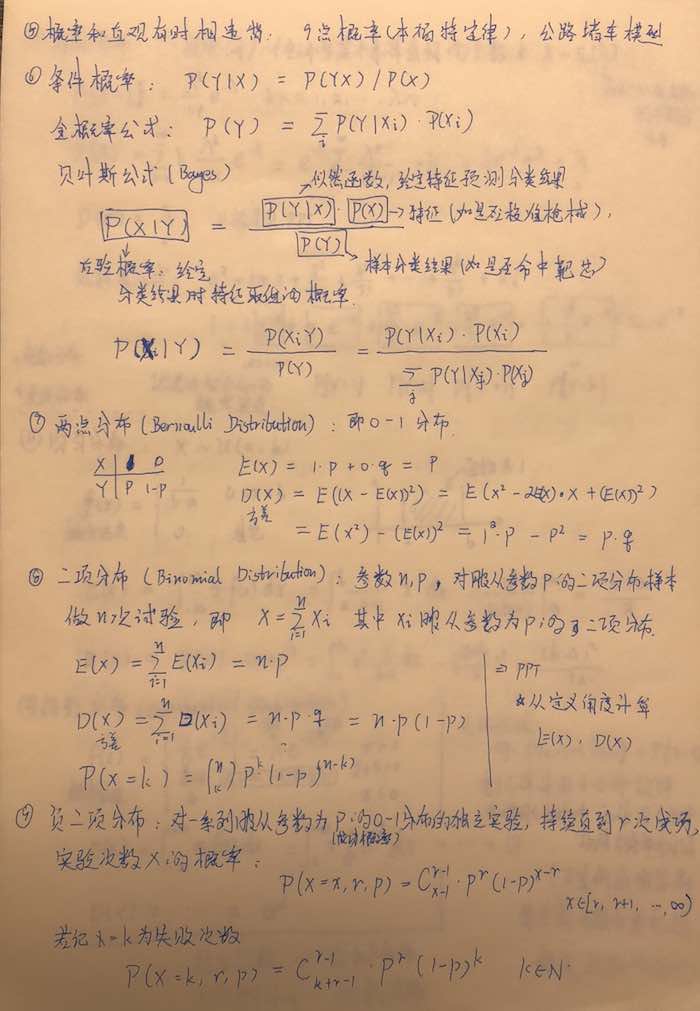 ⑤ 概率和直观有时相违背: 9点概率(本福特定律), 公路堵车模型
⑥ 条件概率: P(Y|X) = P(YX) / P(X)
全概率公式: P(Y) = ∑_i P(Y|Xi) · P(Xi)
贝叶斯公式 (Bayes)
→似然函数, 给定特征预测分类结果
P(X|Y) = P(Y|X) · P(X) / P(Y)
→特征 (如是否校准枪械),
→样本分类结果 (如是否命中靶芯)
后验概率: 给定
分类结果时特征取值的概率.
P(Xi|Y) = P(XiY) / P(Y) = P(Y|Xi) · P(Xi) / ∑_j P(Y|Xj) · P(Xj)
⑦ 两点分布 (Bernoulli Distribution): 即 0-1 分布.
X | 1 0
Y | P 1-p
E(X) = 1·p + 0·q = p
D(X) = E((X - E(X))²) = E(x² - 2E(X)·X + (E(X))²)
方差
= E(x²) - (E(X))² = 1²·p - p² = p·q
⑧ 二项分布 (Binomial Distribution): 参数 n, p, 对服从参数 p 的二项分布样本
做 n 次试验, 即 X = ∑_{i=1}^{n} Xi 其中 Xi 服从参数为 p 的 二项分布.
E(X) = ∑_{i=1}^{n} E(Xi) = n·p
D(X) = ∑_{i=1}^{n} D(Xi) = n·p·q = n·p(1-p)
方差
P(X=k) = (n k) p^k (1-p)^(n-k)
⇒ PPT
* 从定义角度计算
E(X), D(X)
⑨ 负二项分布: 对一系列服从参数为 p 的 0-1 分布的独立实验, 持续直到 r 次成功,
(成功概率)
实验次数 X 的概率:
P(X=x, r, p) = C_{x-1}^{r-1} · p^r (1-p)^{x-r}
x∈[r, r+1, …, ∞)
若记 x=k 为失败次数
P(X=k, r, p) = C_{k+r-1}^{r-1} · p^r (1-p)^k k∈N.